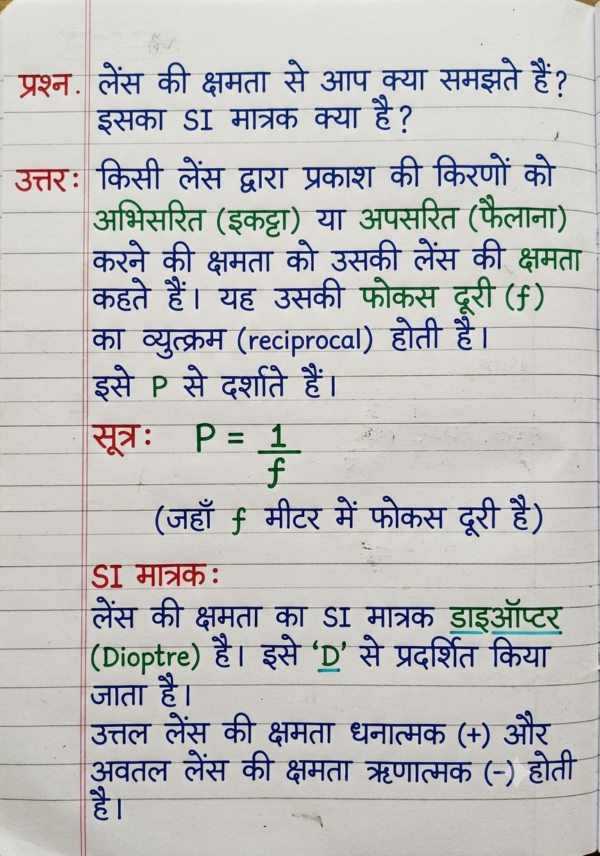 प्रश्न. लेंस की क्षमता से आप क्या समझते हैं?
इसका SI मात्रक क्या है?
उत्तर: किसी लेंस द्वारा प्रकाश की किरणों को
अभिसरित (इकट्ठा) या अपसरित (फैलाना)
करने की क्षमता को उसकी लेंस की क्षमता
कहते हैं। यह उसकी फोकस दूरी (f)
का व्युत्क्रम (reciprocal) होती है।
इसे P से दर्शाते हैं।
सूत्र: P = 1/f
(जहाँ f मीटर में फोकस दूरी है)
SI मात्रक:
लेंस की क्षमता का SI मात्रक डाइऑप्टर
(Dioptre) है। इसे ‘D’ से प्रदर्शित किया
जाता है।
उत्तल लेंस की क्षमता धनात्मक (+) और
अवतल लेंस की क्षमता ऋणात्मक (-) होती
है।